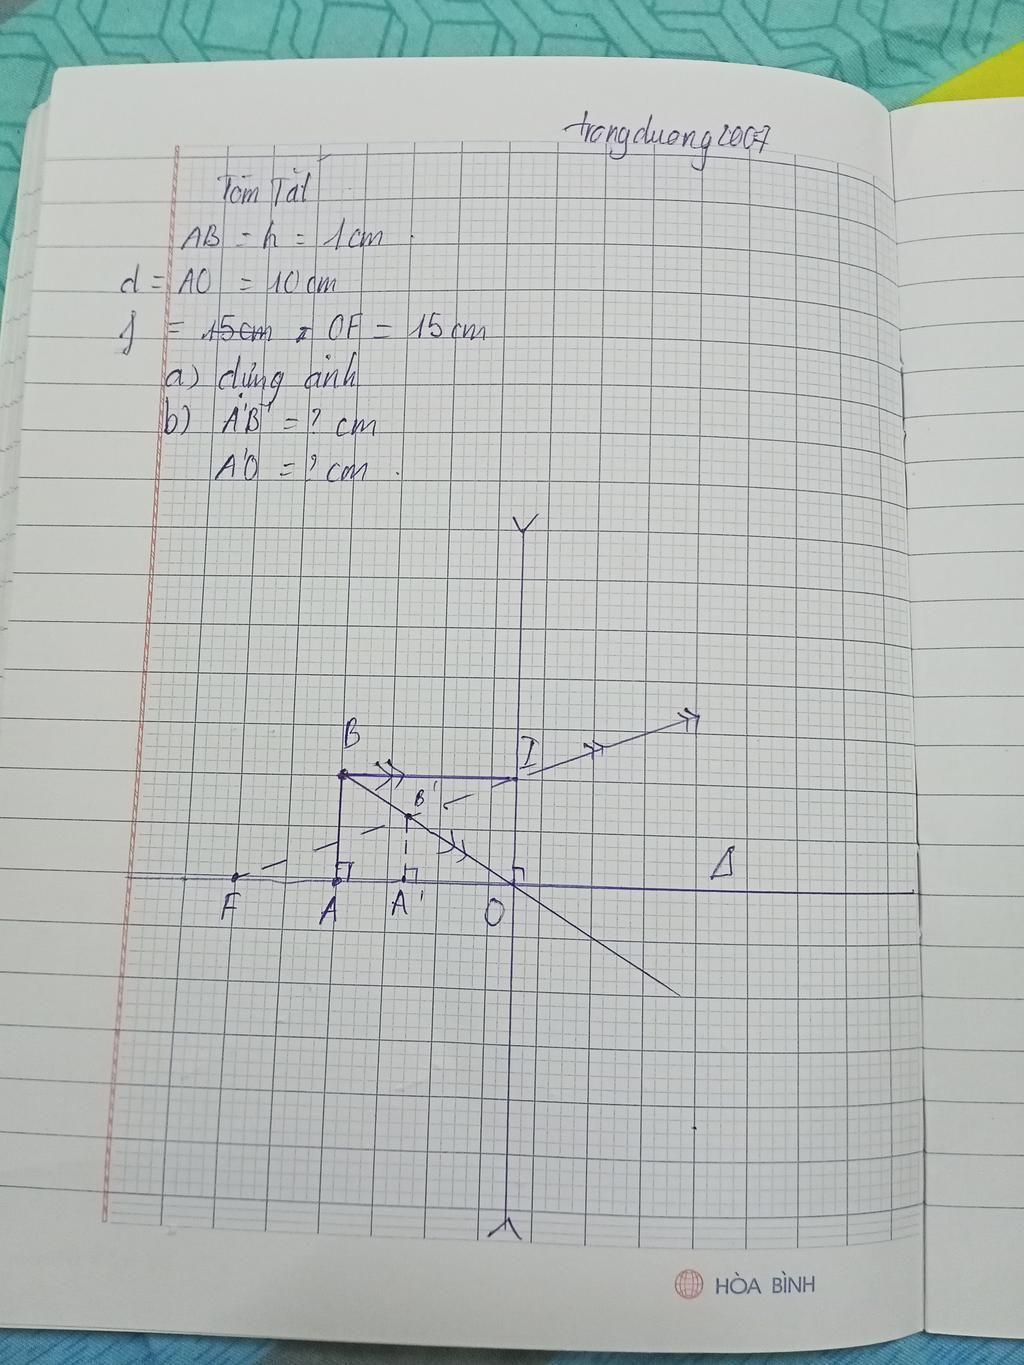 trongduong2007
Tóm Tắt
AB = h = 1cm.
d = AO = 10cm
f = 15cm = OF = 15cm
a) dựng ảnh
b) A'B' = ? cm
A'O = ? cm.
B
I
B'
Δ
F
A
A'
O
HÒA BÌNH